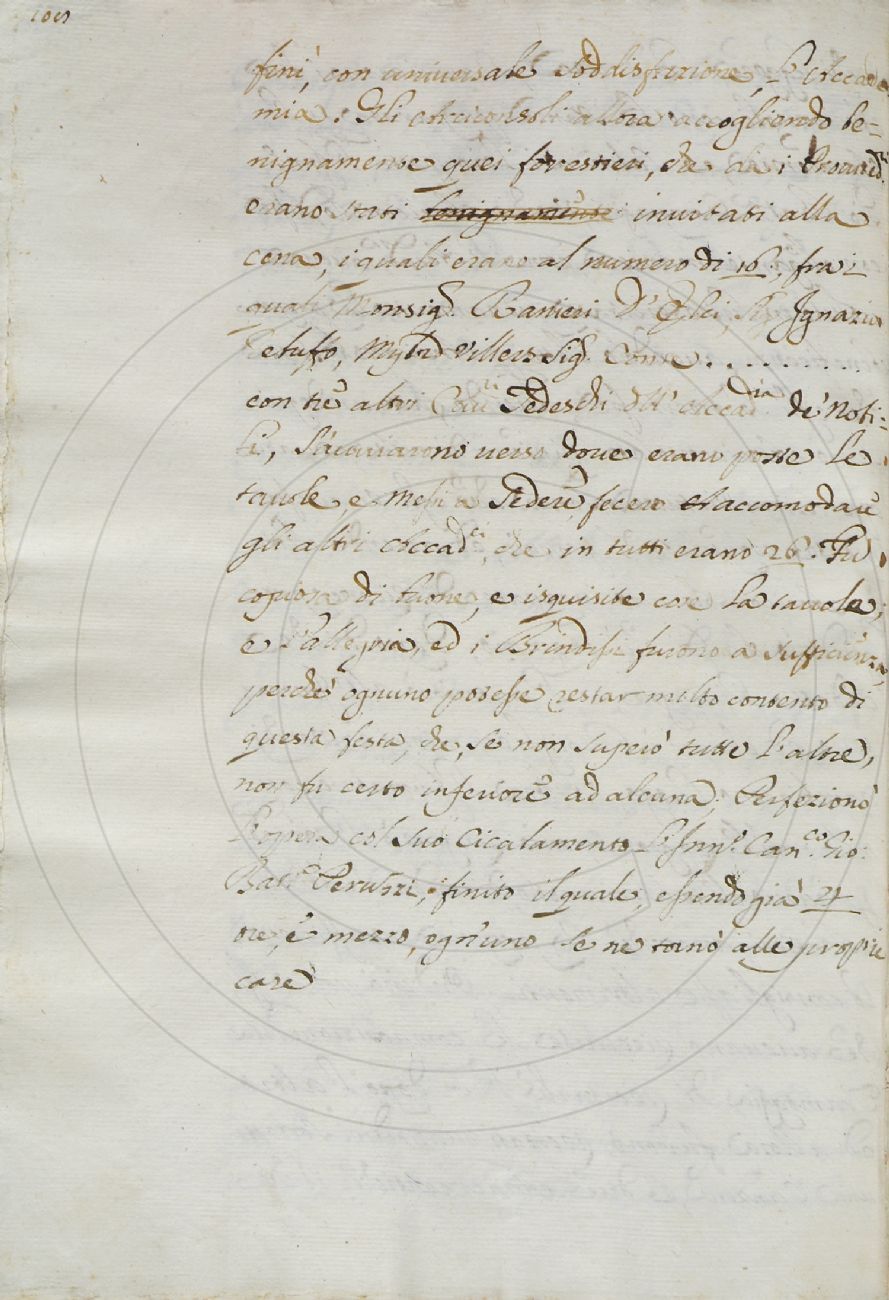 finì, con universale soddisfazione, l'Accade
mia. Gli Arciconsoli allora accogliendo be-
nignamente quei forestieri, che da i Provved.ri
erano stati benignamente invitati alla
cena, i quali erano al numero di 16, fra i
quali Monsig.r Ranieri D'Elci, Ignazio
Mylrd Villers Sig.r Conte . . . . . . . . . .
con tre altri Tedeschi dell' Accad.ia de' Nobi-
li, s'avviarono verso dove erano poste le
tavole, e messi a sedere, fecero raccomodare
gli altri Accad.ci, che in tutti erano 26. Fù
copiosa di buone, e isquisite cose la tavola,
e l'allegria, ed i Brindisi furono a sufficienza,
perchè ognuno potesse restar molto contento di
questa festa, che, se non superò tutte l'altre,
non fu certo inferiore ad alcuna; Perfezionò
l'opera col suo Cicalamento l'Inn.o Can.co Gio:
Bat.a Peruzzi, finito il quale, essendo già
ore, e mezzo, ogn'uno se ne tornò alle proprie
case